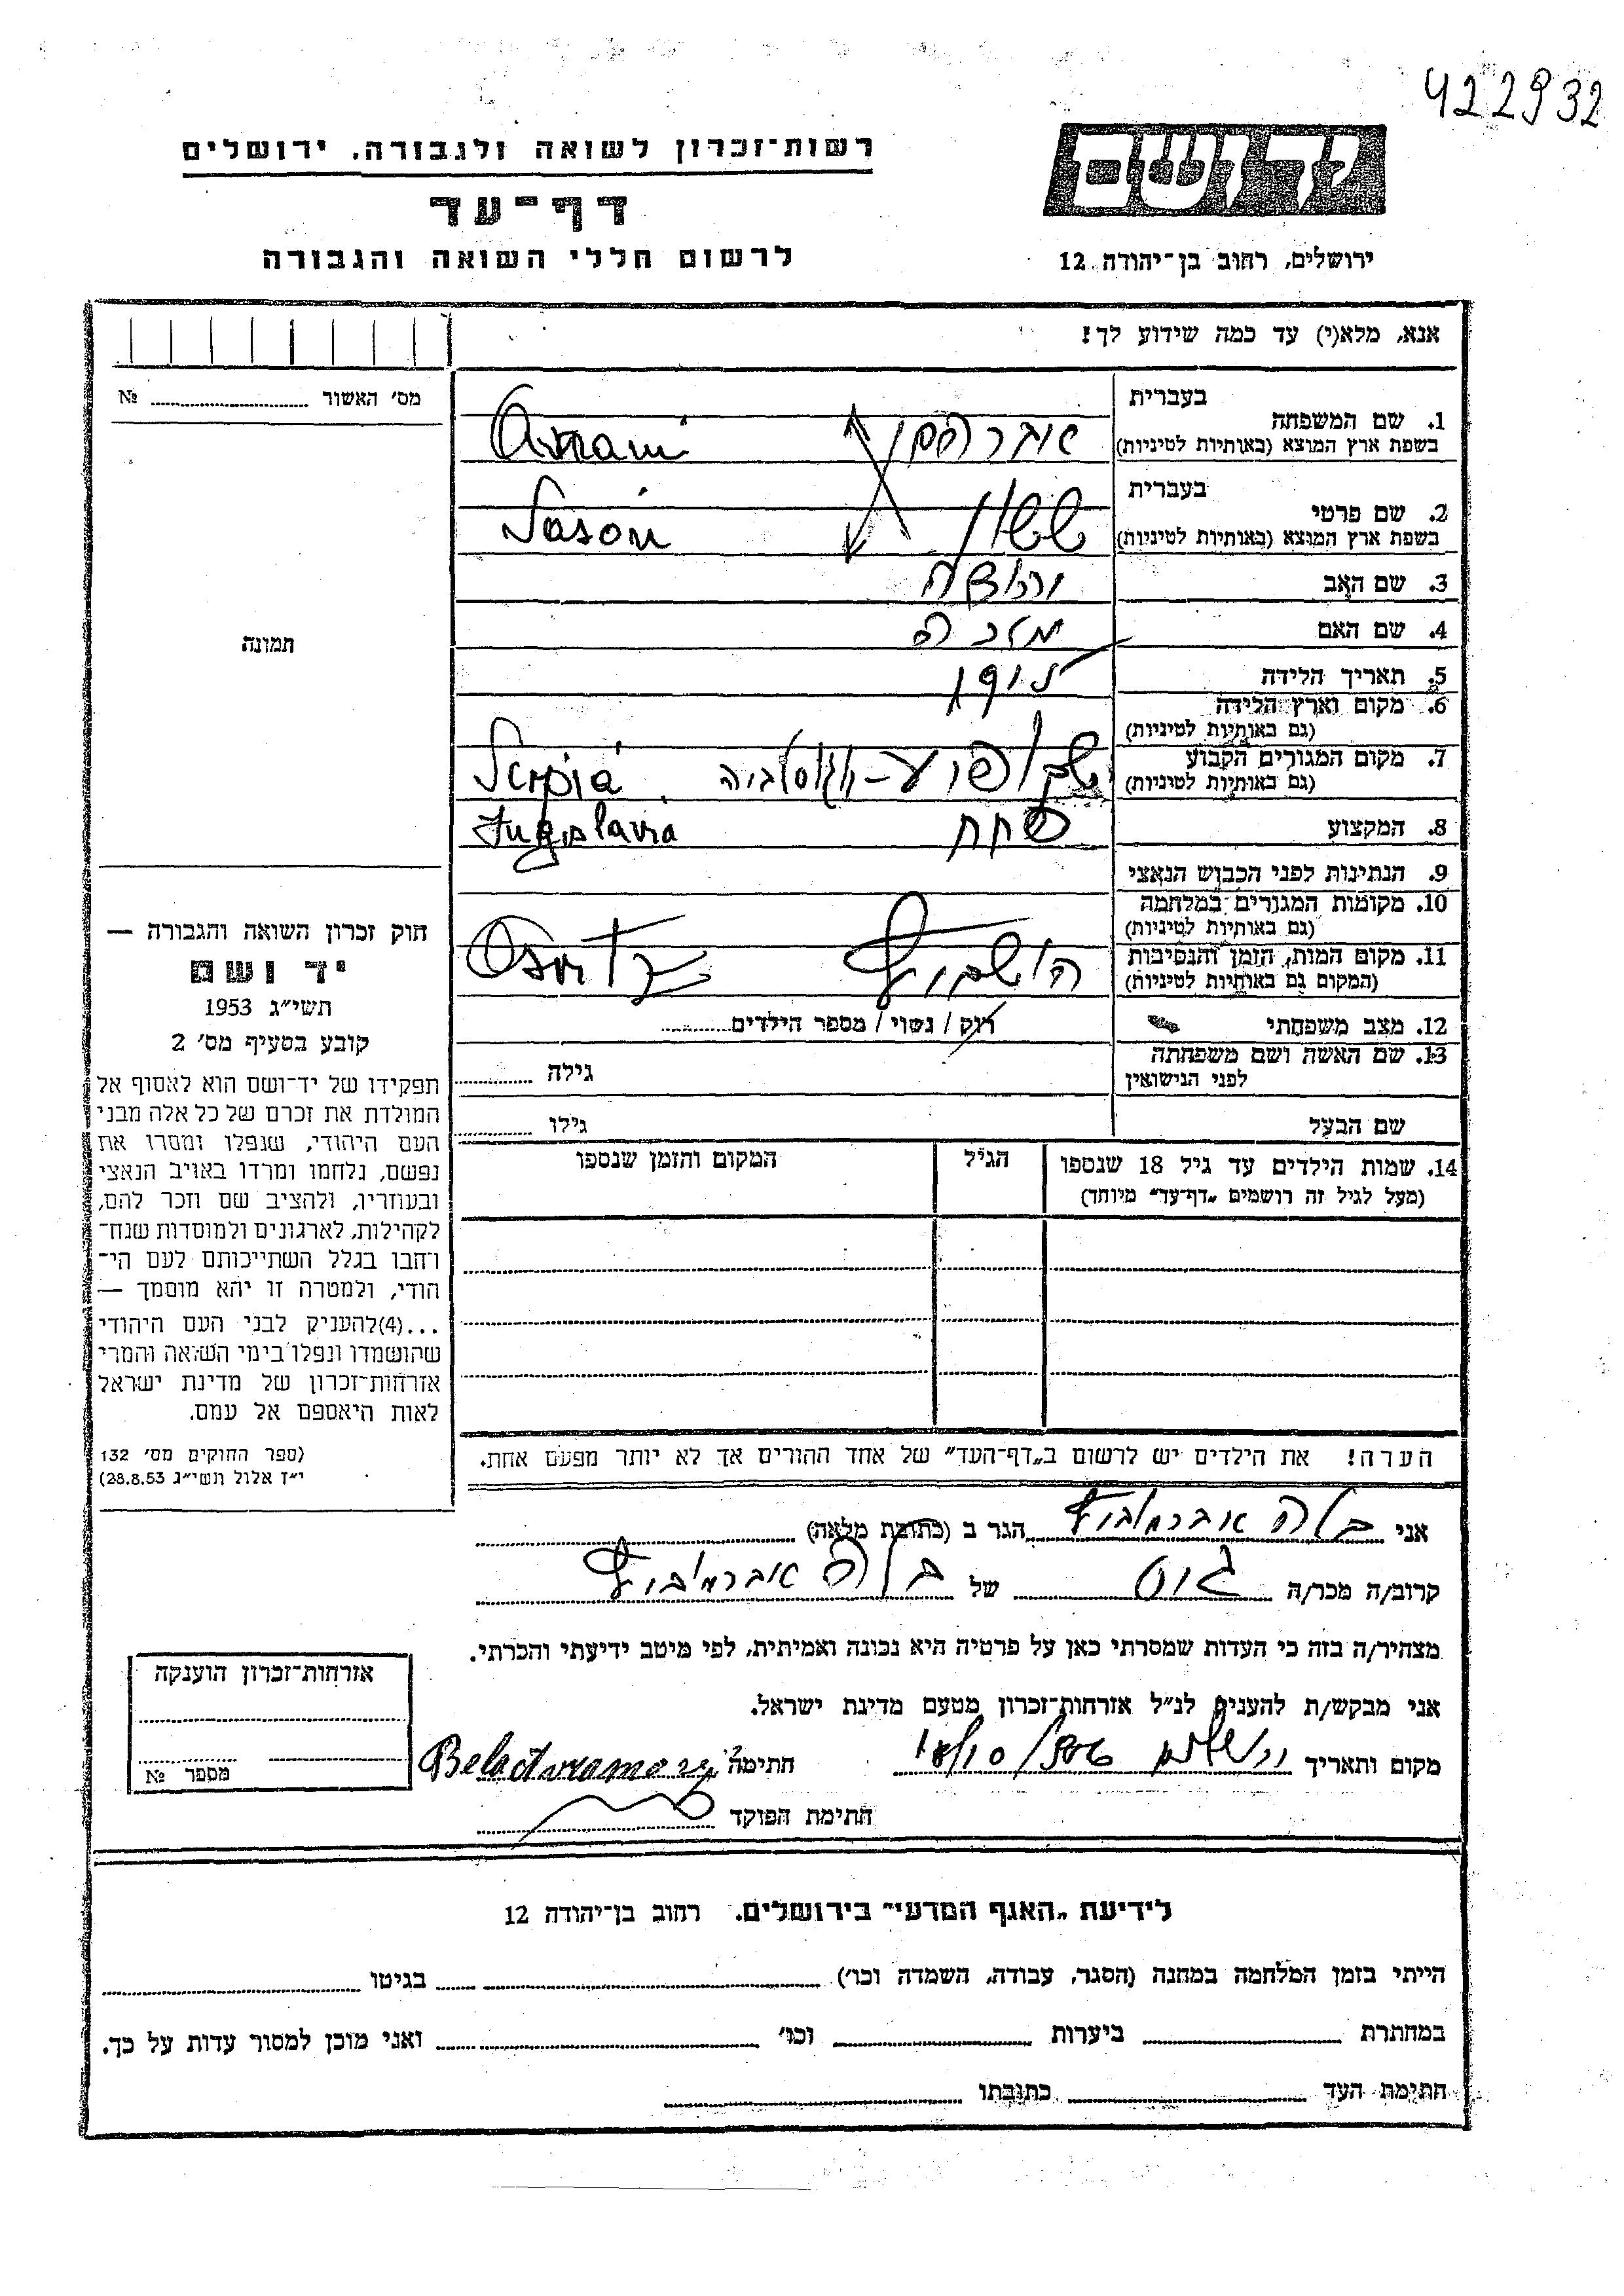 422932
יד ושם
רשות־זכרון לשואה ולגבורה, ירושלים
דף־עד
לרשום חללי השואה והגבורה
ירושלים, רחוב בן־יהודה 12
אנא, מלא(י) עד כמה שידוע לך!
מס׳ האשור № 
בעברית
1. שם המשפחה
בשפת ארץ המוצא (באותיות לטיניות)
Avrami
בעברית
2. שם פרטי
בשפת ארץ המוצא (באותיות לטיניות)
ששון Sason
3. שם האב
4. שם האם
תמונה
5. תאריך הלידה
6. מקום וארץ הלידה
(גם באותיות לטיניות)
7. מקום המגורים הקבוע
(גם באותיות לטיניות)
יוגוסלביה
8. המקצוע
Jugoslavia
9. הנתינות לפני הכבוש הנאצי
10. מקומות המגורים במלחמה
(גם באותיות לטיניות)
11. מקום המות, הזמן והנסיבות
(המקום גם באותיות לטיניות)
12. מצב משפחתי רווק / נשוי / מספר הילדים
13. שם האשה ושם משפחתה
לפני הנישואין
גילה
שם הבעל גילו
14. שמות הילדים עד גיל 18 שנספו הגיל המקום והזמן שנספו
(מעל לגיל זה רושמים „דף־עד״ מיוחד)
הערה! את הילדים יש לרשום ב„דף־העד״ של אחד ההורים אך לא יותר מפעם אחת.
חוק זכרון השואה והגבורה —
יד ושם
תשי״ג 1953
קובע בסעיף מס׳ 2
תפקידו של יד־ושם הוא לאסוף אל
המולדת את זכרם של כל אלה מבני
העם היהודי, שנפלו ומסרו את
נפשם, נלחמו ומרדו באויב הנאצי
ובעוזריו, ולהציב שם וזכר להם,
לקהילות, לארגונים ולמוסדות שנח־
רחבו בגלל השתייכותם לעם הי־
הודי, ולמטרה זו יהא מוסמך —
...(4)להעניק לבני העם היהודי
שהושמדו ונפלו בימי השואה והמרי
אזרחות־זכרון של מדינת ישראל
לאות היאספם אל עמם.
(ספר החוקים מס׳ 132
י״ז אלול תשי״ג 28.8.53)
אני בלה אברמוביץ הגר ב (כתובת מלאה)
קרוב/ה מכר/ה של בלה אברמוביץ
מצהיר/ה בזה כי העדות שמסרתי כאן על פרטיה היא נכונה ואמיתית, לפי מיטב ידיעתי והכרתי.
אני מבקש/ת להעניק לנ״ל אזרחות־זכרון מטעם מדינת ישראל.
מקום ותאריך חתימה
חתימת הפוקד
אזרחות־זכרון הוענקה
מספר №
לידיעת „האגף המדעי״ בירושלים. רחוב בן־יהודה 12
הייתי בזמן המלחמה במחנה (הסגר, עבודה, השמדה וכו׳) בגיטו
במחתרת ביערות וכו׳ ואני מוכן למסור עדות על כך.
חתימת העד כתובתו